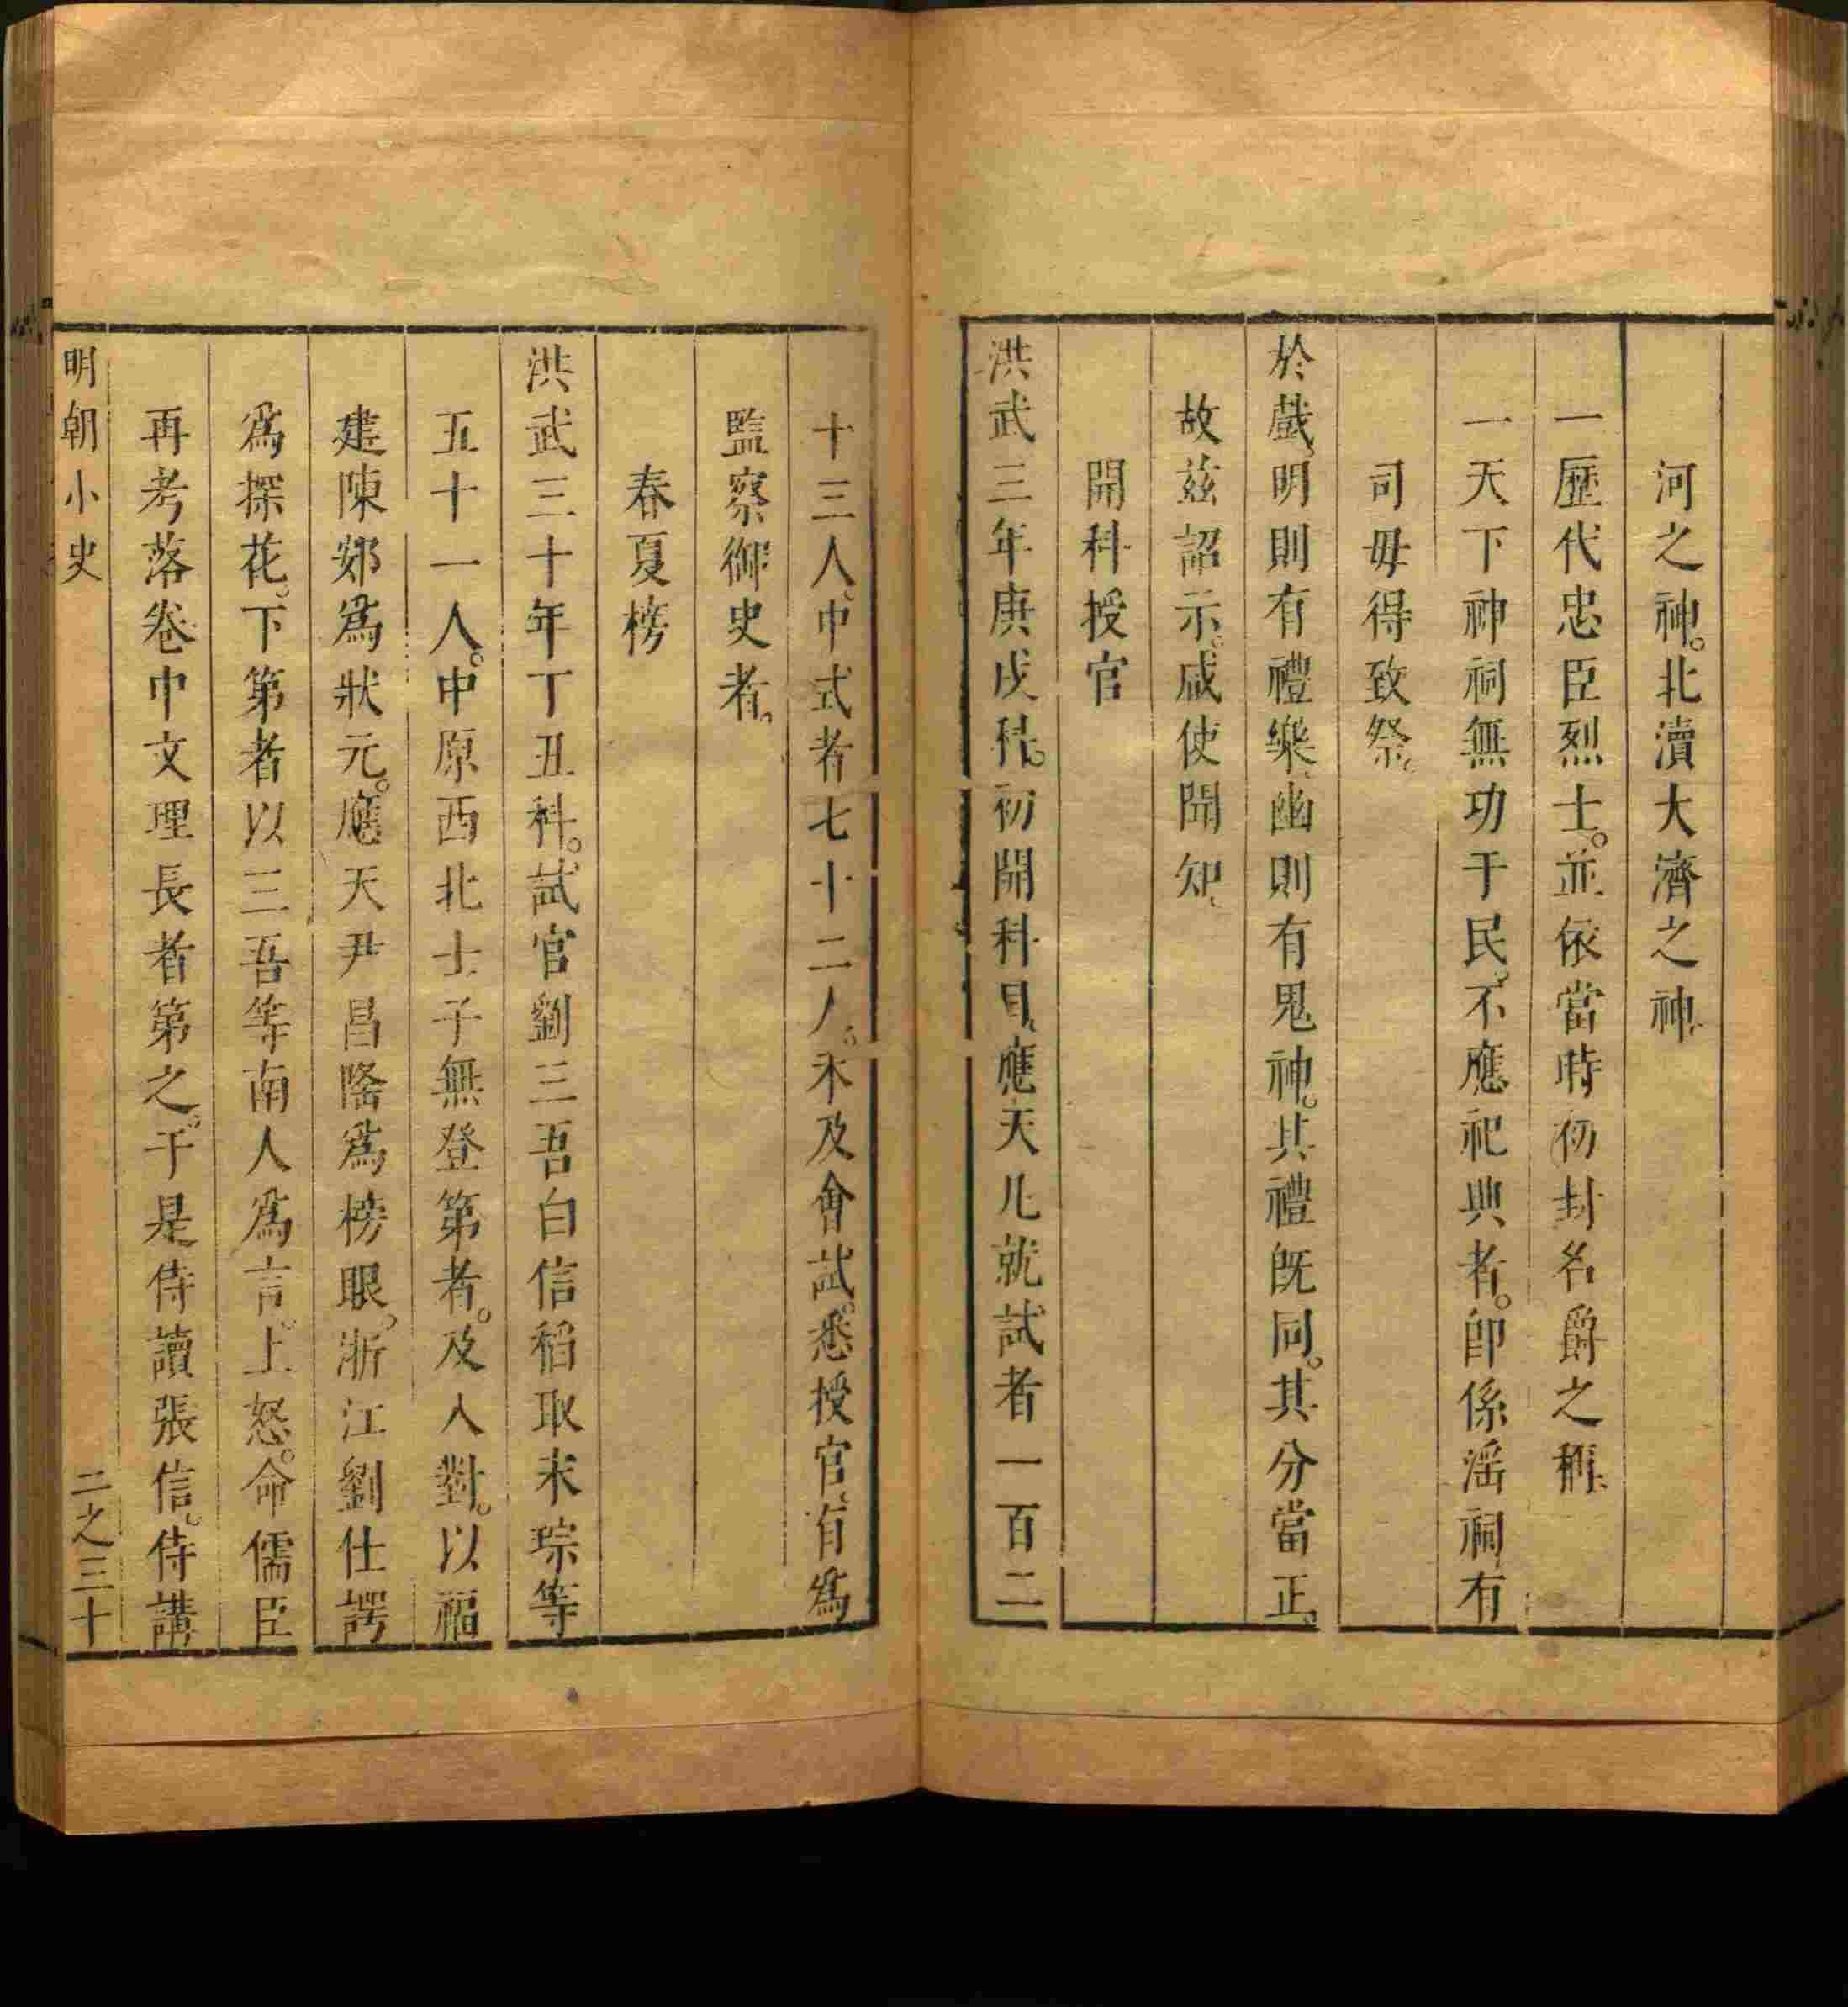 河之神。北瀆大濟之神、
一歷代忠臣烈士。並依當時初封名爵之稱、
一天下神祠無功于民、不應祀典者。卽係淫祠有
司毋得致祭、
於戲、明則有禮樂、幽則有鬼神。其禮旣同。其分當正。
故茲詔示。咸使聞知、
開科授官
洪武三年庚戌科。初開科目、應天凡就試者一百二
十三人、中式者七十二人。未及會試。悉授官、有爲
監察御史者。
春夏榜
洪武三十年丁丑科。試官劉三吾白信稻取宋琮等
五十一人。中原西北士子無登第者。及入對。以福
建陳䢿爲狀元。應天尹昌隆爲榜眼。浙江劉仕諤
爲探花。下第者以三吾等南人爲言。上怒。命儒臣
再考落卷中文理長者第之。于是侍讀張信。侍講
明朝小史
二之三十